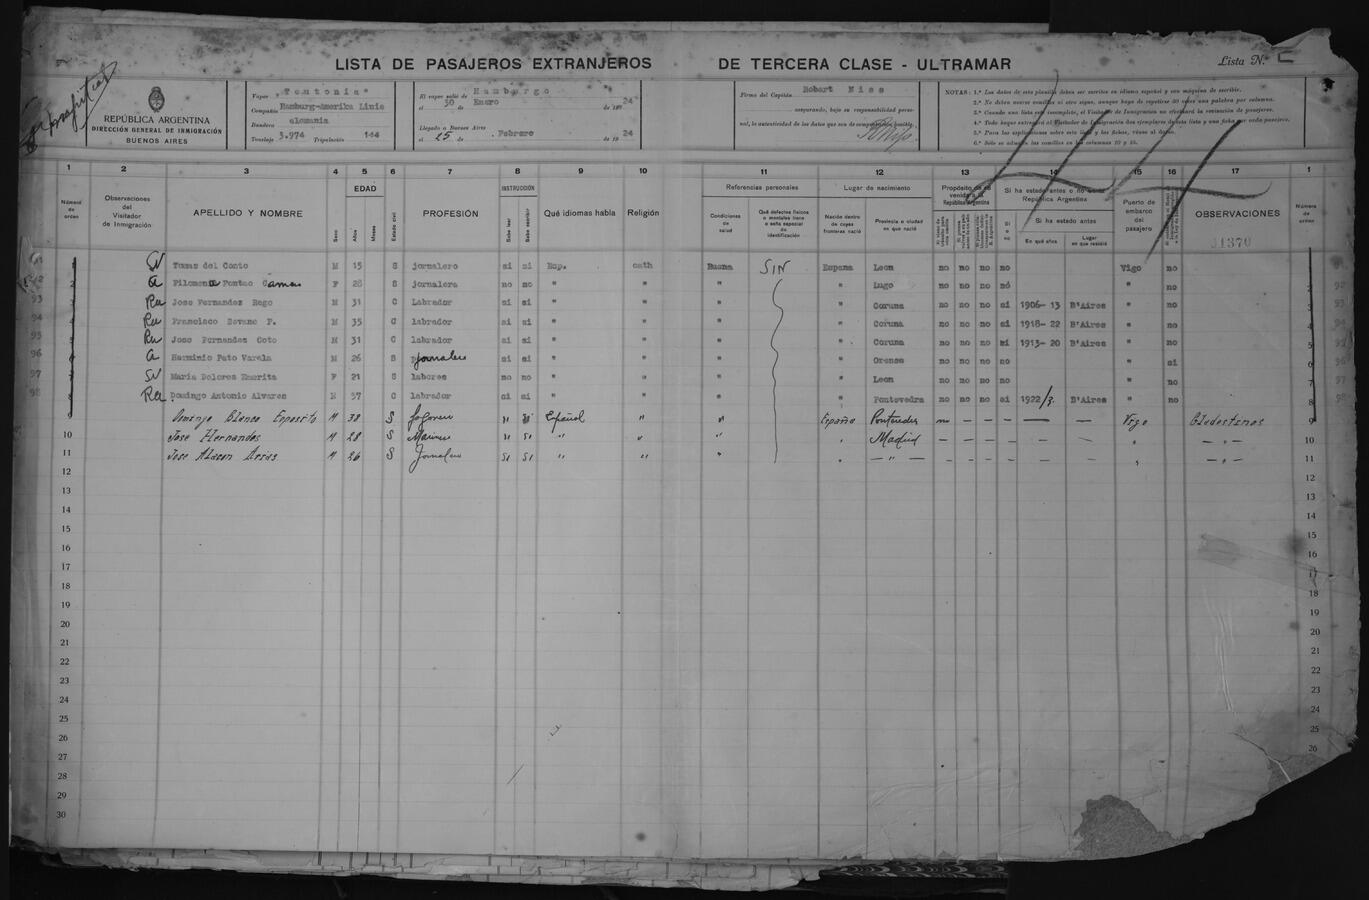 LISTA DE PASAJEROS EXTRANJEROS DE TERCERA CLASE - ULTRAMAR
Lista N.º
REPÚBLICA ARGENTINA
DIRECCIÓN GENERAL DE INMIGRACIÓN
BUENOS AIRES
Vapor "Teutonia"
Compañía Hamburg-Amerika Linie
Bandera alemania
Tonelaje 3.974 Tripulación 144
El vapor salió de Hamburgo
el 30 de Enero de 1924
Llegado a Buenos Aires
el 25 de Febrero de 1924
Firma del Capitán Robert Niss
asegurando, bajo su responsabilidad perso-
nal, la autenticidad de los datos que son de comprobación posible.
NOTAS: 1.º Los datos de esta planilla deben ser escritos en idioma español y con máquina de escribir.
2.º No deben usarse comillas ni otro signo, aunque haya de repetirse 30 veces una palabra por columna.
3.º Cuando una lista esté incompleta, el Visitador de Inmigración no efectuará la revisación de pasajeros.
6.º Sólo se admiten las comillas en las columnas 10 y 15.
1 2 3 4 5 6 7 8 9 10 11 12 13 14 15 16 17 1
Número de orden
Observaciones del Visitador de Inmigración
APELLIDO Y NOMBRE
Sexo
EDAD
Años
Meses
Estado civil
PROFESIÓN
INSTRUCCIÓN
Sabe leer
Sabe escribir
Qué idiomas habla
Religión
Referencias personales
Condiciones de salud
Qué defectos físicos o mentales tiene o seña especial de identificación
Lugar de nacimiento
Nación dentro de cuyas fronteras nació
Provincia o ciudad en que nació
Propósito de su venida a la República Argentina
Si ha estado antes o no en la República Argentina
Si o no
Si ha estado antes
En qué años
Lugar en que residió
Puerto de embarco del pasajero
OBSERVACIONES
31370
Número de orden
91 1 Tomas del Canto M 15 S jornalero si si Esp. cath Buena SIN Espana Leon no no no no Vigo no
92 2 a Filomena Pontao Carmen F 28 S jornalera no no " " " " Lugo no no no no " no 2 92
93 3 Ru Jose Fernandez Rego M 31 C Labrador si si " " " " Coruna no no no si 1906-13 B'Aires " no 3 93
94 4 Ru Francisco Seoane P. M 35 C labrador si si " " " " Coruna no no no si 1918-22 B'Aires " no 4 94
95 5 Ru Jose Fernandez Coto M 31 C labrador si si " " " " Coruna no no no si 1913-20 B'Aires " no 5 95
96 6 a Herminio Pato Varela M 26 S jornalero si si " " " " Orense no no no no " si 6 96
97 7 Maria Dolores Emerita F 21 S labores no no " " " " Leon no no no no " no 7 97
98 8 Ru Domingo Antonio Alvares M 37 C labrador si si " " " " Pontevedra no no no si 1922/3. B'Aires " no 8 98
9 Domingo Blanco Esposito M 38 S " " Español " " España Pontevedra no — — — — — Vigo Clodestinos 9
10 Jose Hernandes M 28 S Marinero " SI " " " " Madrid — — — — — — " — " — 10
11 Jose Alason Arias M 26 S Jornalero SI SI " " " " — " — — — — — — — " — " — 11
12 12
13 13
14 14
15 15
16 16
17 17
18 18
19 19
20 20
21 21
22 22
23 23
24 24
25 25
26 26
27
28
29
30